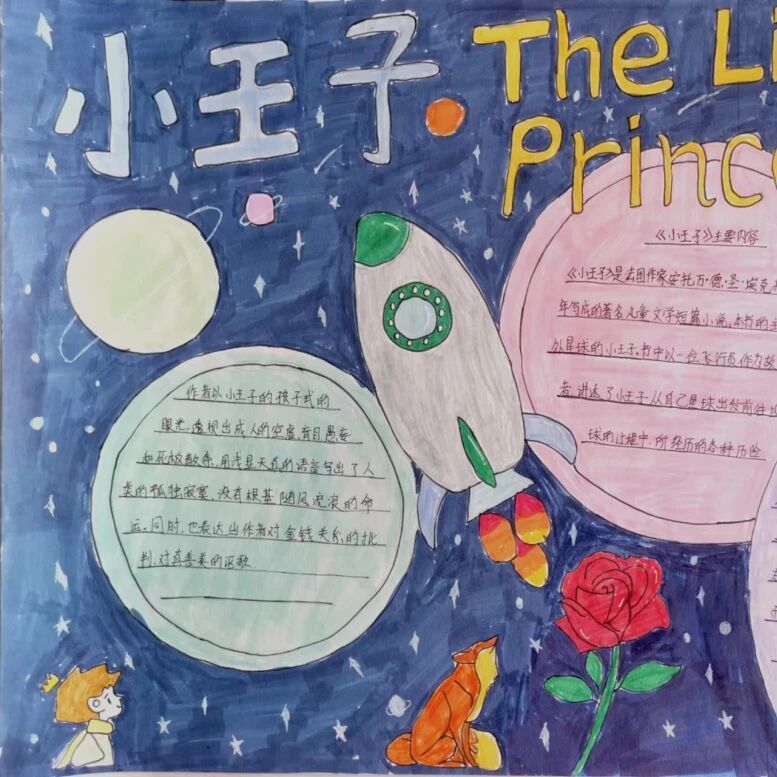 小王子
The Li
Princ
《小王子》主要内容
《小王子》是法国作家安托万·德·圣·埃克
年写成的著名儿童文学短篇小说。本书的主
外星球的小王子。书中以一位飞行员作为故
者,讲述了小王子从自己星球出发前往
球的过程中,所经历的各种历险
作者以小王子的孩子式的
眼光,透视出成人的空虚,盲目愚妄
和死板教条,用浅显天真的语言写出了人
类的孤独寂寞、没有根基随风流浪的命
运。同时,也表达出作者对金钱关系的批
判,对真善美的讴歌